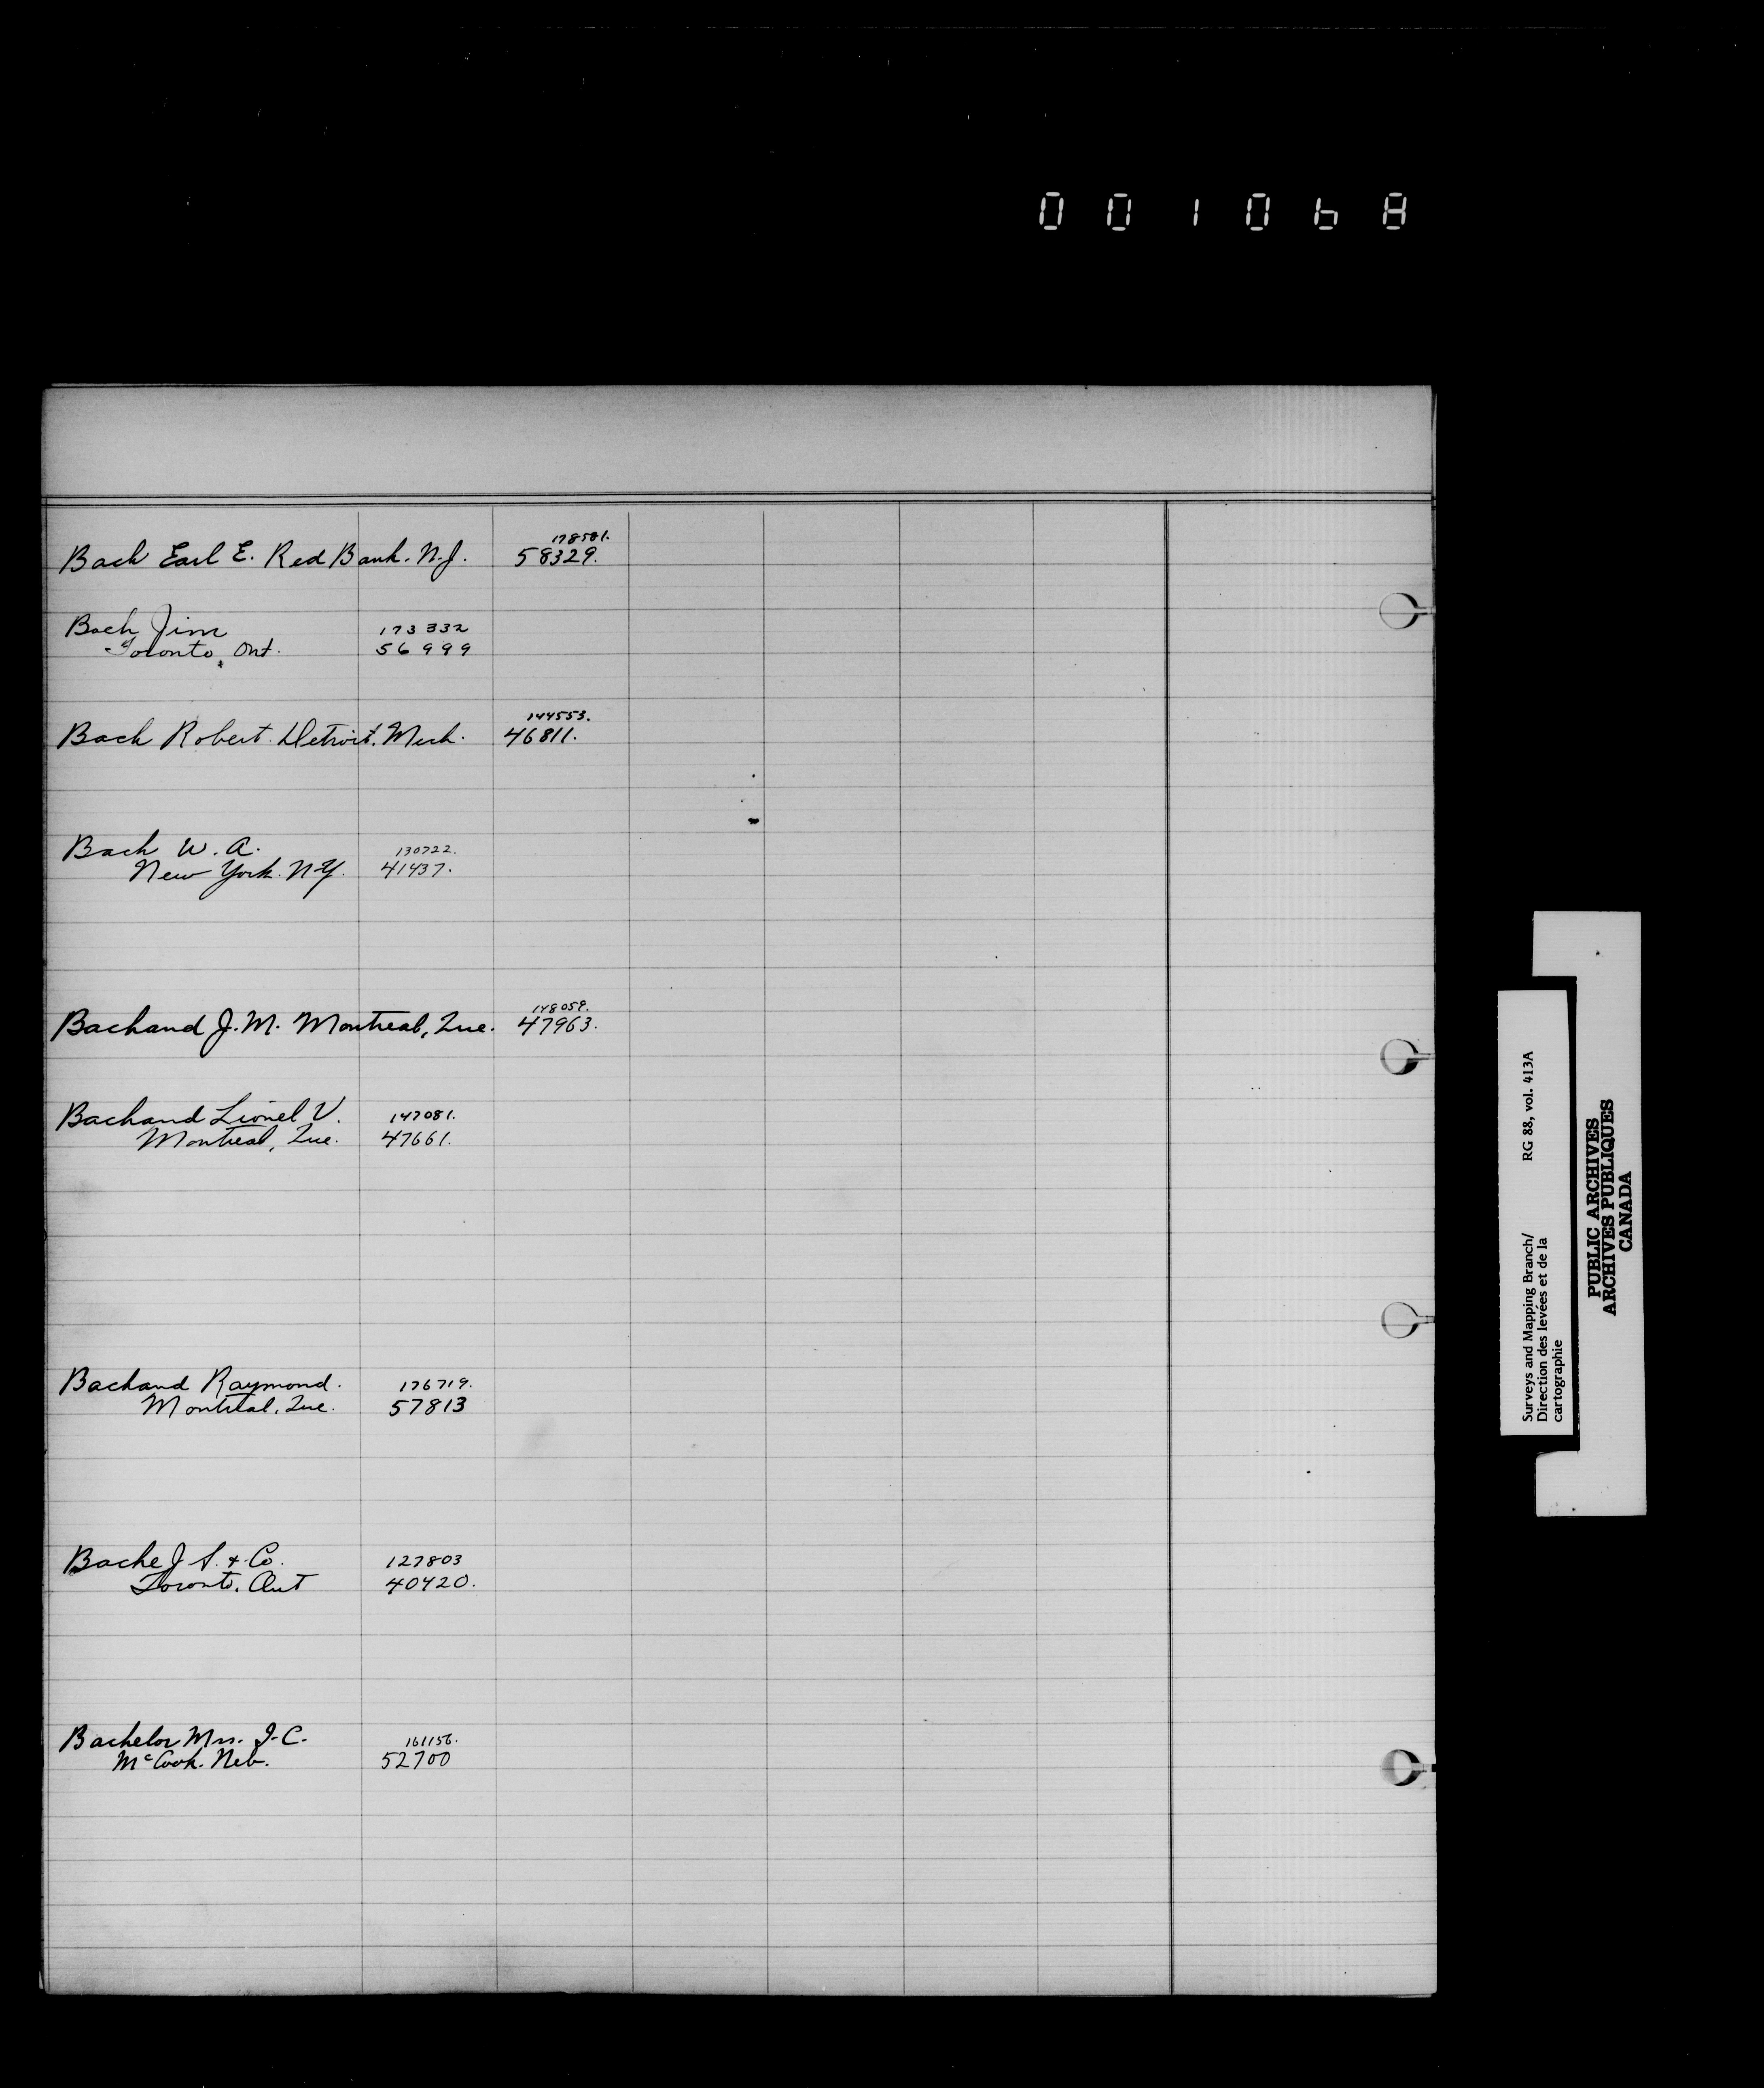 001068
178581.
Bach Earl E. Red Bank. N.J. 58329.
Bach Jim 173332
Toronto, Ont. 56999
144553.
Bach Robert. Detroit. Mich. 46811.
Bach W. A. 130722.
New York. N.Y. 41437.
148059.
Bachand J. M. Montreal, Que. 47963.
Bachand Lionel V. 147081.
Montreal, Que. 47661.
Bachand Raymond. 176719.
Montreal, Que. 57813
Bache J. S. & Co. 127803
Toronto. Ont 40420.
Bachelor Mrs. I. C. 161156.
McCook. Neb. 52700
Surveys and Mapping Branch/ RG 88, vol. 413A
Direction des levées et de la
cartographie
PUBLIC ARCHIVES
ARCHIVES PUBLIQUES
CANADA